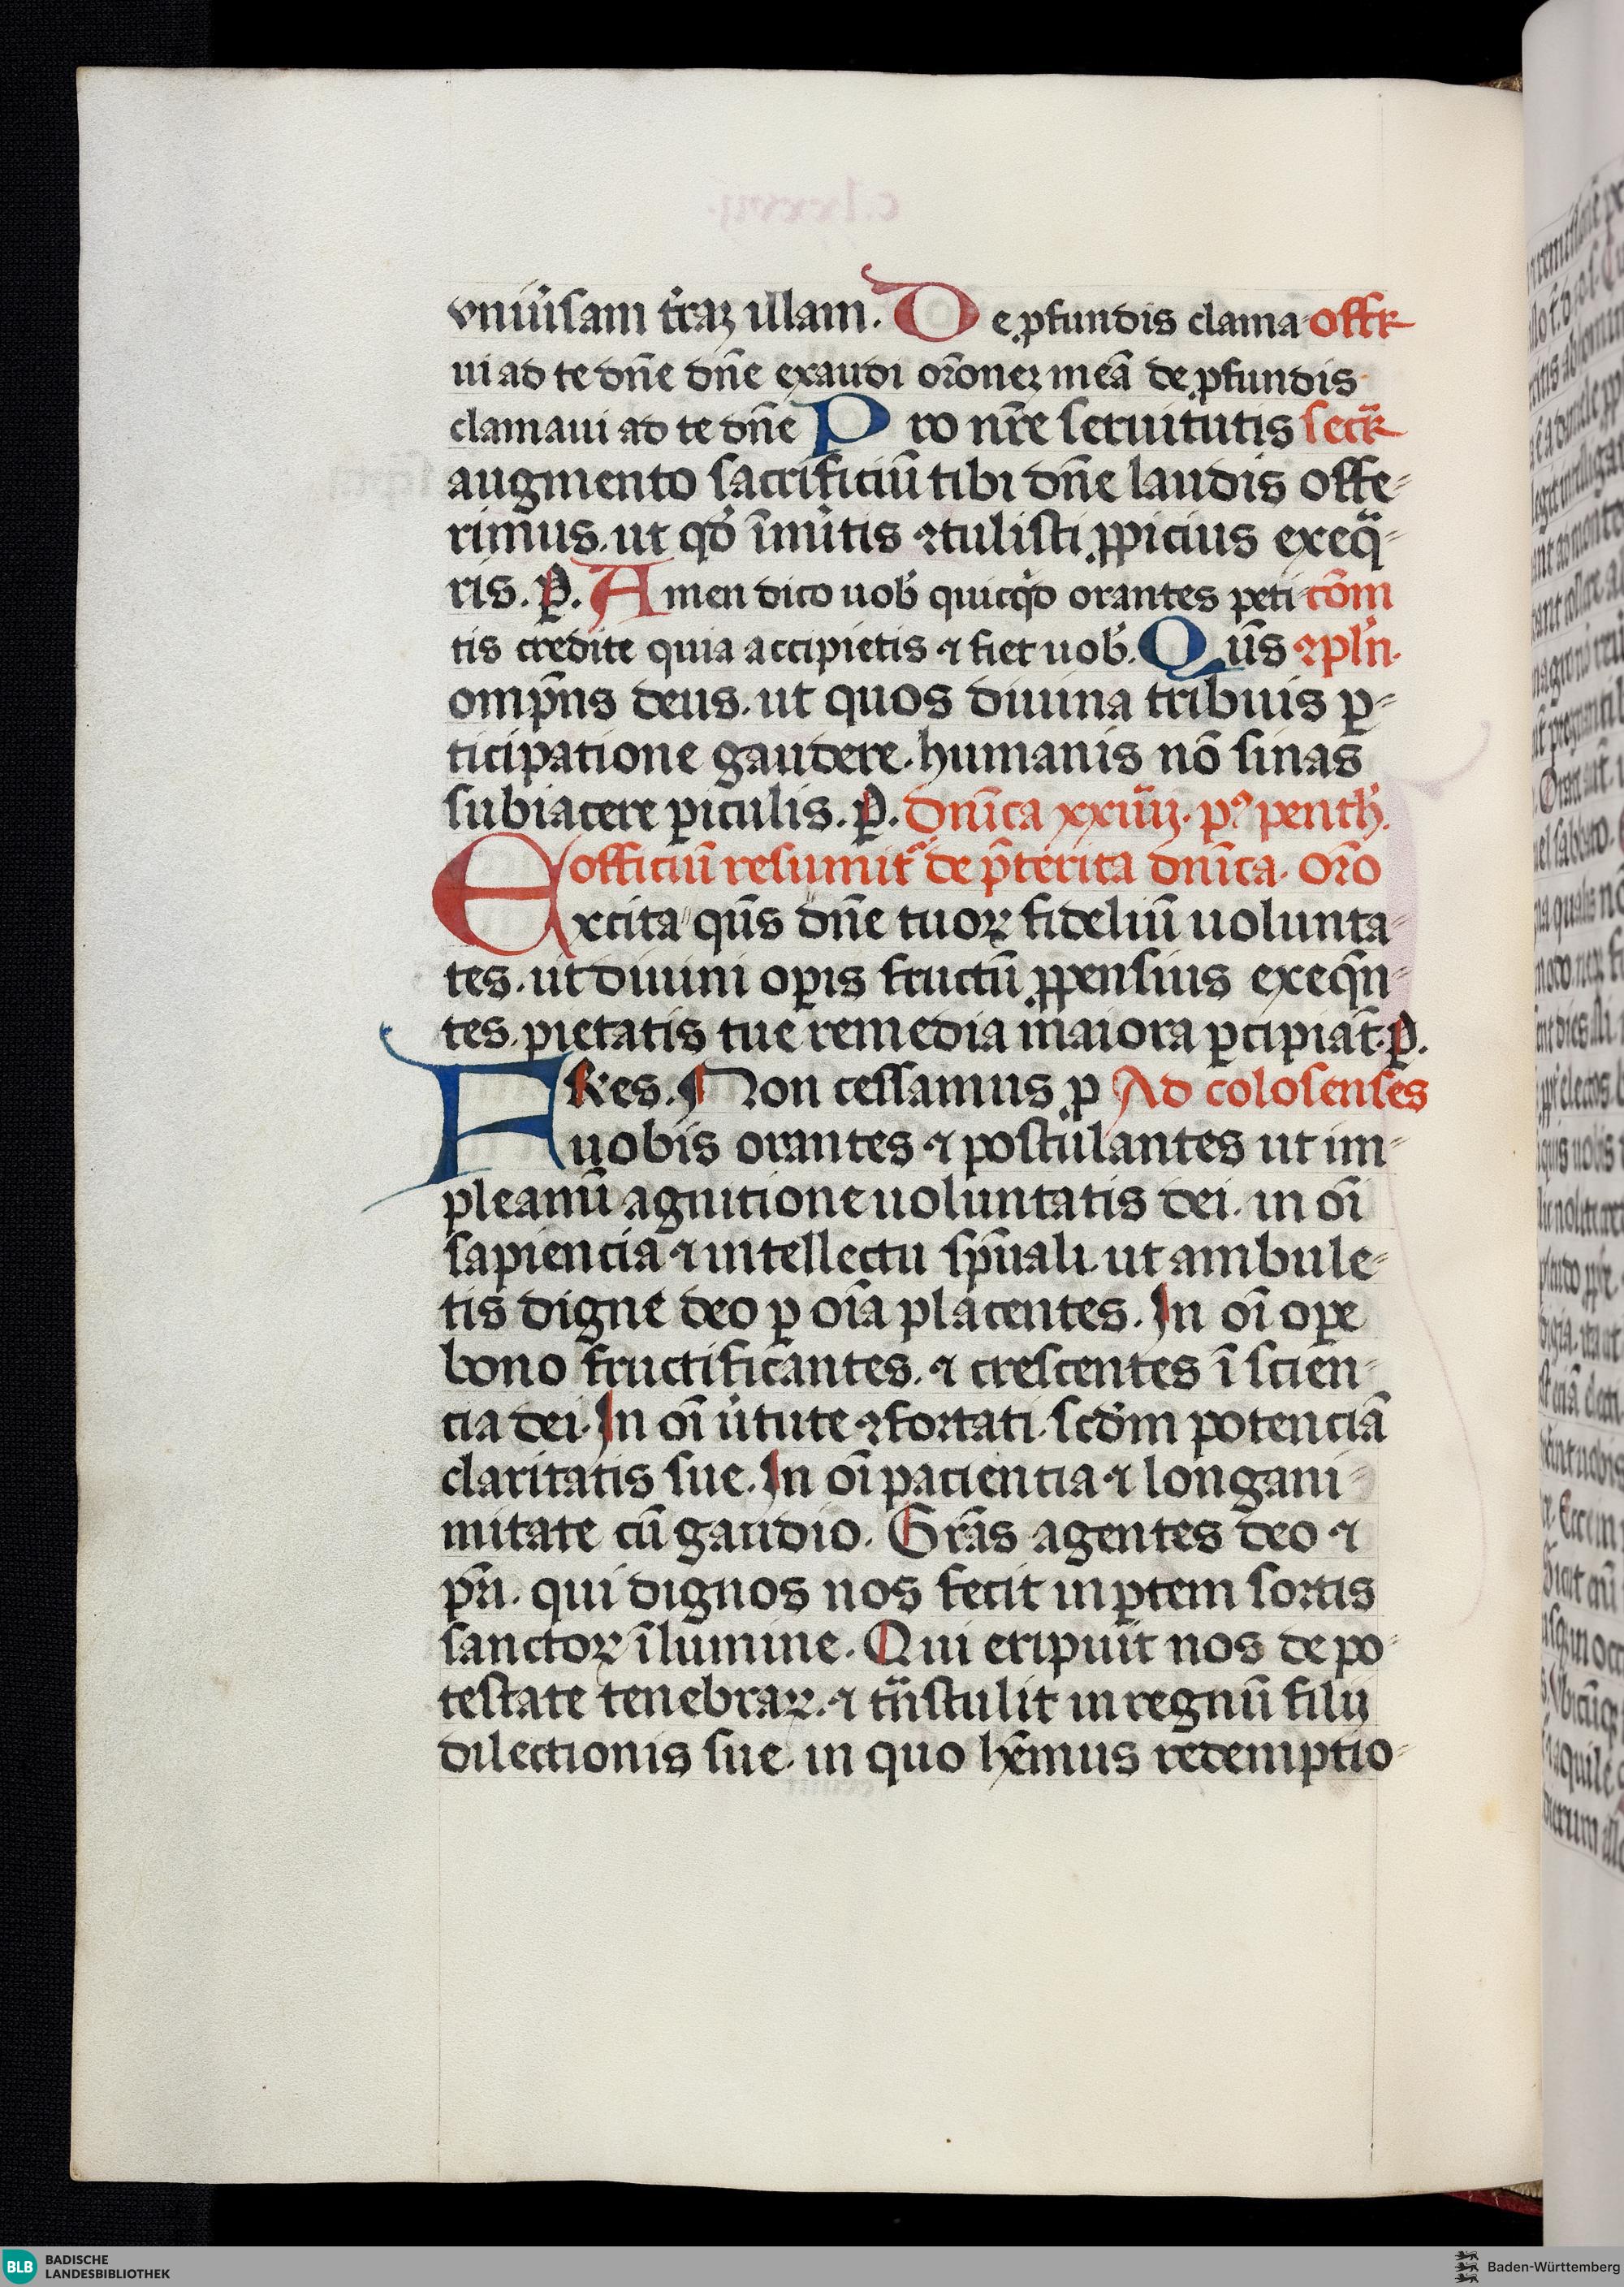 vniũsam t̃raꝫ illam. De ꝓfundis clama offr̃
ui ad te dñe dñe exaudi or̃oneꝫ meã de ꝓfundis
clamaui ad te dñe Pro nr̃e seruitutis secr̃
augmento sacrificiũ tibi dñe laudis offe-
rimus. ut qđ ĩmĩtis ↄtulisti ꝓpicius exeq̃-
ris. ꝑ. Amen dico uob̃ quicq̃d orantes peti cõm
tis credite quia accipietis ⁊ fiet uob̃. Qũs ↄpl̃n.
omp̃ns deus. ut quos diuina tribuis ꝑ-
ticipatione gaudere. humanis nõ sinas
subiacere ꝑiculis. ꝑ. Dñica xxiiij. pꝰ penth̃.
officiũ resumit̃ de p̃terita dñica. Or̃o
Excita qũs dñe tuoꝝ fideliũ uolunta-
tes. ut diuini oꝑis fructũ ꝓpensius exeq̃n-
tes. pietatis tue remedia maiora ꝑcipiãt. ꝑ.
Fr̃es. Non cessamus ꝓ Ad colosenses
uobis orantes ⁊ postulantes ut im-
pleamĩ agnitione uoluntatis dei. in oĩ
sapiencia ⁊ intellectu sp̃uali. ut ambule-
tis digne deo ꝑ oĩa placentes. In oĩ oꝑe
bono fructificantes. ⁊ crescentes ĩ scien-
cia dei. In oĩ ũtute ↄfortati. scđm potenciã
claritatis sue. In oĩ paciencia ⁊ longani-
mitate cũ gaudio. Gr̃as agentes deo ⁊
pr̃i. qui dignos nos fecit in ꝑtem sortis
sanctoꝝ ĩ lumine. Qui eripuit nos de po-
testate tenebraꝝ. ⁊ tr̃nstulit in regnũ filij
dilectionis sue. in quo hẽmus redemptio-
BLB BADISCHE
LANDESBIBLIOTHEK
Baden-Württemberg